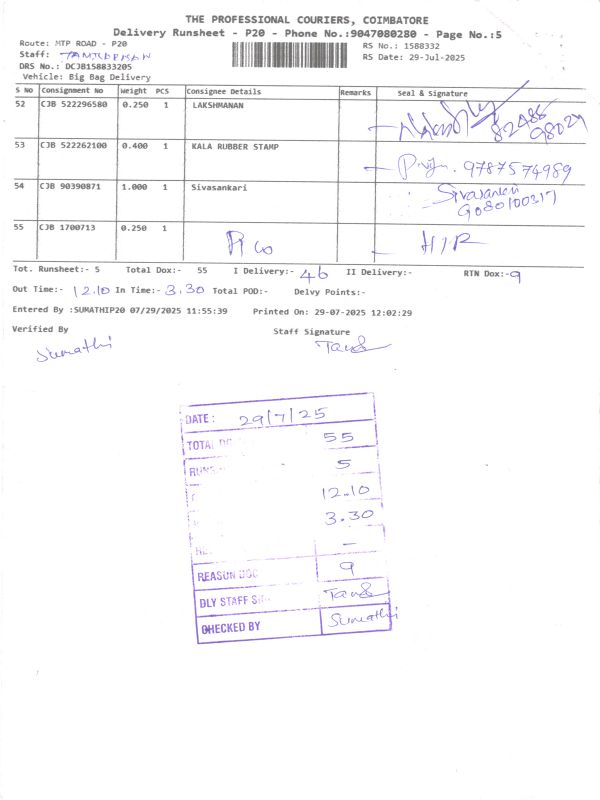 THE PROFESSIONAL COURIERS, COIMBATORE
Delivery Runsheet - P20 - Phone No.:9047080280 - Page No.:5
Route: MTP ROAD - P20
RS No.: 1588332
Staff:
RS Date: 29-Jul-2025
DRS No.: DCJB158833205
Vehicle: Big Bag Delivery
S No Consignment No Weight PCS Consignee Details Remarks Seal & Signature
52 CJB 522296580 0.250 1 LAKSHMANAN
53 CJB 522262100 0.400 1 KALA RUBBER STAMP 9787574989
54 CJB 90390871 1.000 1 Sivasankari Sivasankari
55 CJB 1700713 0.250 1
Tot. Runsheet:- 5 Total Dox:- 55 I Delivery:- 46 II Delivery:- RTN Dox:- 9
Out Time:- 12.10 In Time:- 3.30 Total POD:- Delvy Points:-
Entered By :SUMATHIP20 07/29/2025 11:55:39 Printed On: 29-07-2025 12:02:29
Verified By Staff Signature
Sumathi
DATE : 29/7/25
TOTAL 55
5
12.10
3.30
-
REASON DOC 9
DLY STAFF
CHECKED BY Sumathi